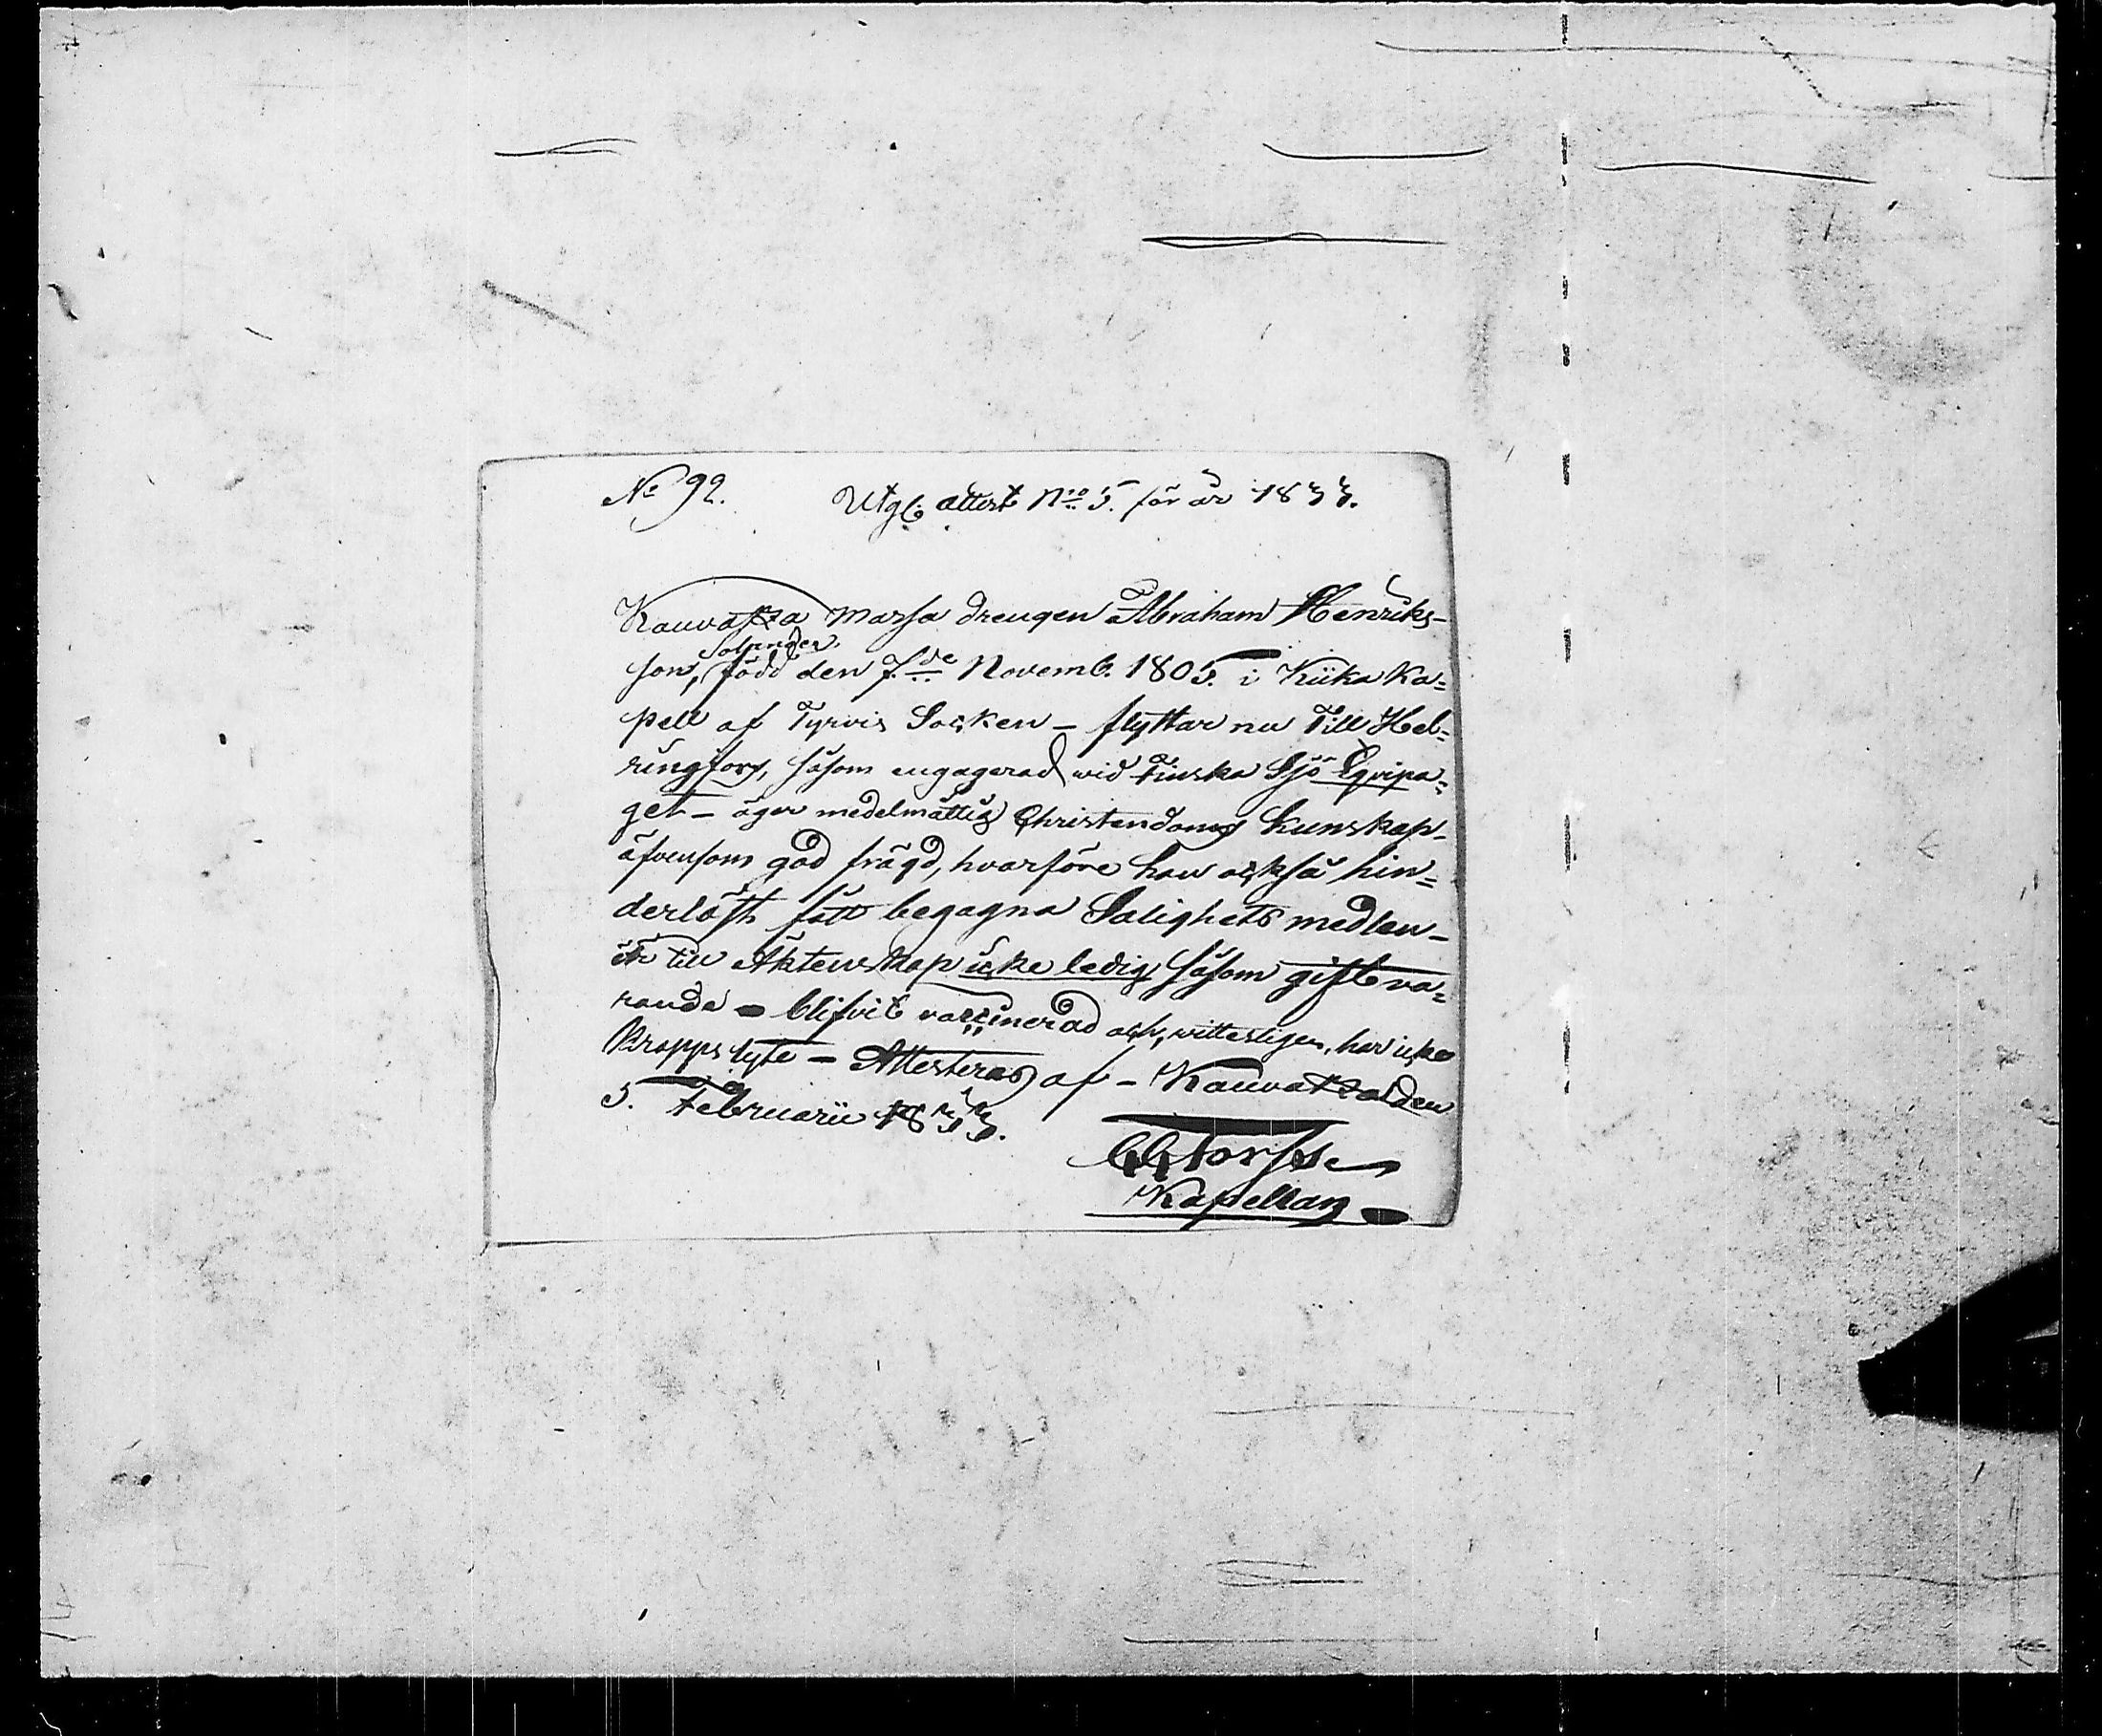 No 92. Utgl. attest No 5. för år 1833.
Kauvatza Massa drengen Abraham Henriks-
Solander
son, född den 7.de Novemb. 1805. i Kiika Ka=
pell af Tyrvis Socken – flyttar nu Till Hel=
singfors, såsom engagerad wid Finska Sjö Eqvipa=
get – äger medelmåttig Christendoms Kunskap-
äfvensom god frägd, hvarföre han också hin=
derlöst fått begagna Salighets medlen –
är till Äktenskap icke ledig såsom gift va=
rande – blifvit vaccinerad och, witterligen, har icke
Kropps lyte – Attesteras af – Kauvatza den
5. Februarii 1833.
Kapellan